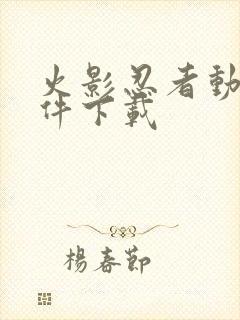 火影忍者動
件下載
楊春節